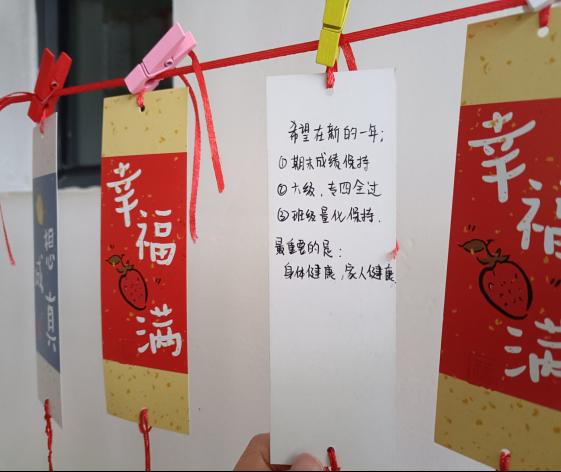 想
感
真
幸
福
满
希望在新的一年：
①期末成绩保持
②六级，专四全过
③班级量化保持.
最重要的是：
身体健康，家人健康
幸
福
满